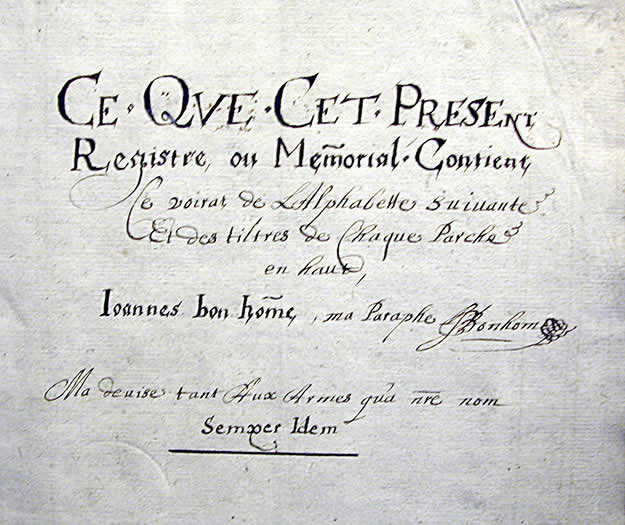 CE · QVE · CET · PRESENT
Registre, ou Mem̃orial · Contient,
Ce voirat de L'Alphabette suivante
Et des tiltres de Chaque Parche
en haut,
Ioannes bon hom̃e, ma Paraphe JBonhome
Ma devise tant Aux Armes qu'a nr̃e nom
Semper Idem